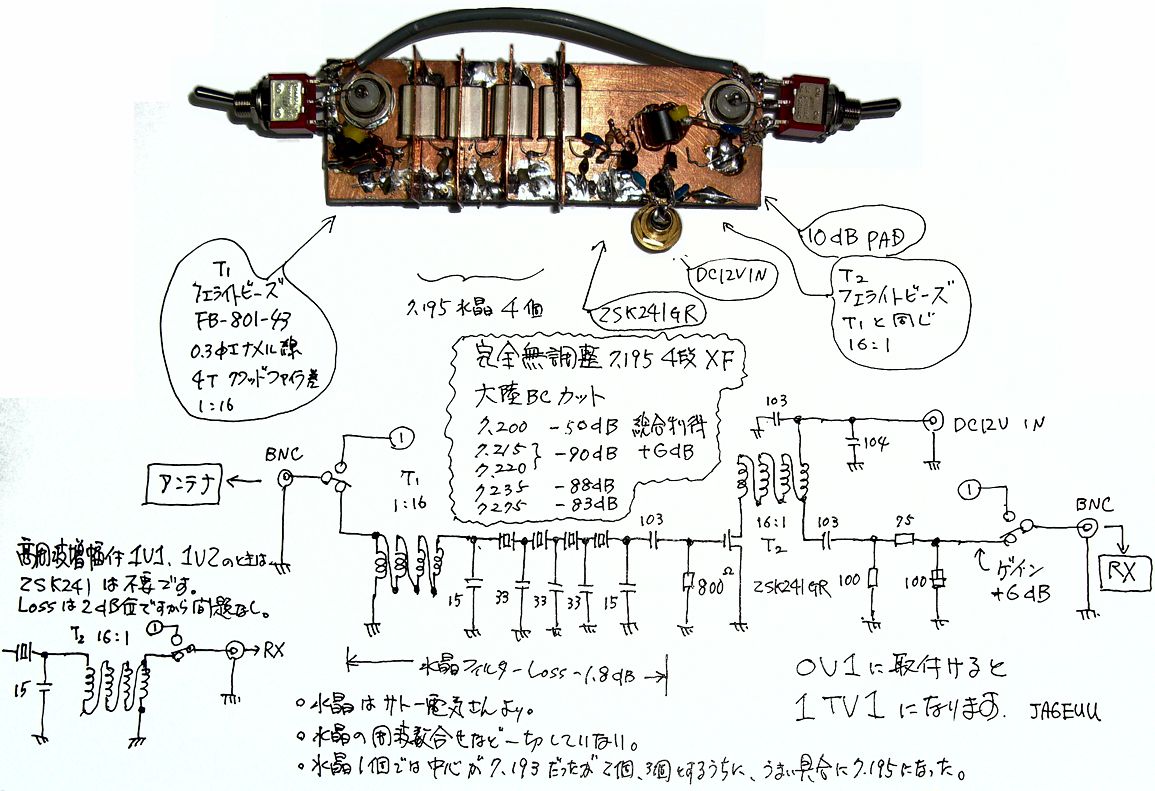 T1
フェライトビーズ
FB-801-43
0.3φエナメル線
4T クワッドファイラ巻
1:16
7.195 水晶 4個
2SK241GR
DC12V IN
10dB PAD
T2
フェライトビーズ
T1と同じ
16:1
完全無調整 7.195 4段 XF
大陸BCカット
7.200 -50dB 総合利得
7.215 -90dB +6dB
7.220
7.235 -88dB
7.275 -83dB
アンテナ
BNC
1
T1
1:16
15
33
33
33
15
103
800Ω
2SK241GR
103
16:1
T2
104
DC12V IN
103
75
100
100
1
ゲイン
+6dB
BNC
RX
高周波増幅付 1V1、1V2のときは、
2SK241 は不要です。
Lossは2dB位ですから問題なし。
T2 16:1
1
RX
15
水晶フィルターLoss -1.8dB
0V1に取付けると
1TV1 になります. JA6EUU
○水晶はサトー電気さんより。
○水晶の周波数合せなど一切していない。
○水晶1個では中心が7.193だったが2個、3個とするうちに、うまい具合に7.195になった。